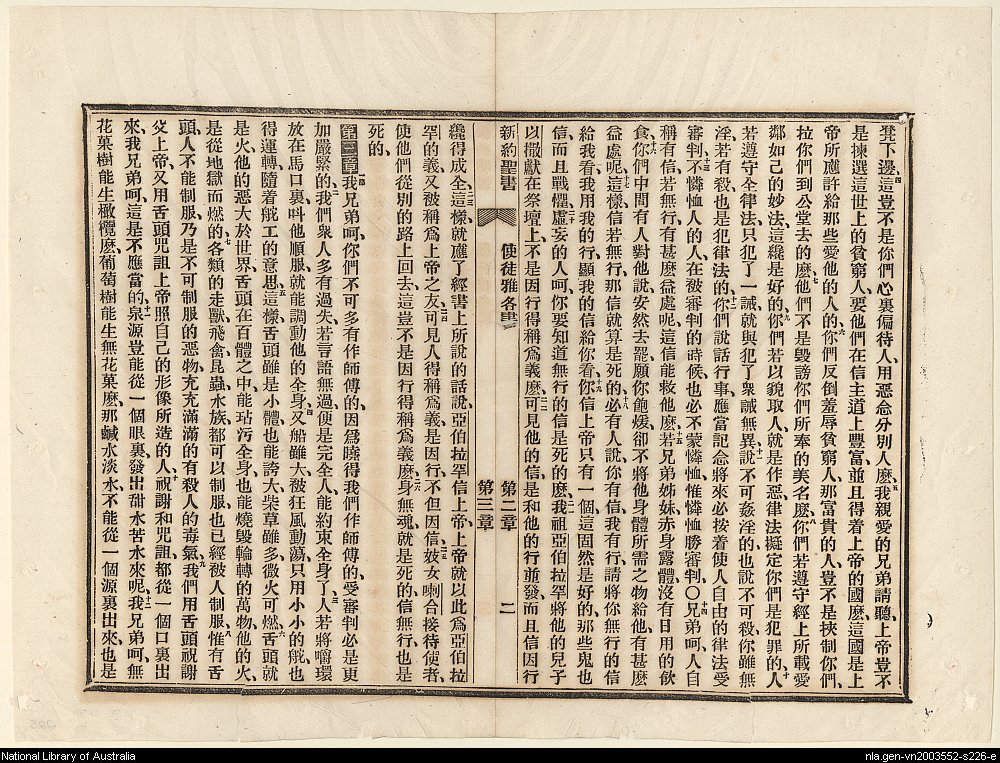 凳下邊、這豈不是你們心裏偏待人、用惡念分別人麽、我親愛的兄弟請聽、上帝豈不
是揀選這世上的貧窮人、要他們在信主道上豐富並且得着上帝的國麽、這國是上
帝所應許給那些愛他的人的、你們反倒羞辱貧窮人、那富貴的人、豈不是挾制你們、
拉你們到公堂去的麽、他們不是毀謗你們所奉的美名麽、你們若遵守經上所載愛
鄰如己的妙法、這纔是好的、你們若以貌取人、就是作惡、律法擬定你們是犯罪的、人
若遵守全律法、只犯了一誡、就與犯了衆誡無異、說不可姦淫的、也說不可殺、你雖無
淫、若有殺、也是犯律法的、你們說話行事、應當記念將來必按着使人自由的律法受
審判、不憐恤人的人、在被審判的時候、也必不蒙憐恤、惟憐恤勝審判、〇兄弟呵、人自
稱有信、若無行、有甚麽益處呢、這信能救他麽、若兄弟姊妹赤身露體、沒有日用的飲
食、你們中間有人對他說、安然去罷、願你飽煖、卻不將他身體所需之物給他、有甚麽
益處呢、這樣信若無行、那信就算是死的、必有人說、你有信我有行、請將你無行的信
給我看、我用我的行、顯我的信給你看、你信上帝只有一個、這固然是好的、那些鬼也
信、而且戰懼、虛妄的人呵、你要知道無行的信是死的麽、我祖亞伯拉罕將他的兒子
以撒獻在祭壇上、不是因行得稱爲義麽、可見他的信、是和他的行並發、而且信因行
新約聖書 使徒雅各書 第二章 第三章 二
纔得成全、這樣、就應了經書上所說的話、說、亞伯拉罕信上帝、上帝就以此爲亞伯拉
罕的義、又被稱爲上帝之友、可見人得稱爲義、是因行、不但因信、妓女喇合接待使者、
使他們從別的路上回去、這豈不是因行得稱爲義麽、身無魂、就是死的、信無行、也是
死的、
第三章 我兄弟呵、你們不可多有作師傅的、因爲曉得我們作師傅的、受審判必是更
加嚴緊的、我們衆人多有過失、若言語無過、便是完全人、能約束全身了、人若將嚼環
放在馬口裏、叫他順服、就能調動他的全身、又船雖大、被狂風動蕩、只用小小的舵、也
得運轉、隨着舵工的意思、這樣、舌頭雖是小體、也能誇大、柴草雖多、微火可燃、舌頭就
是火、他的惡大於世界、舌頭在百體之中、能玷污全身、也能燒毀輪轉的萬物、他的火、
是從地獄而燃的、各類的走獸飛禽昆蟲水族、都可以制服、也已經被人制服、惟有舌
頭、人不能制服、乃是不可制服的惡物、充滿滿的有殺人的毒氣、我們用舌頭祝謝
父上帝、又用舌頭咒詛上帝照自己的形像所造的人、祝謝和咒詛、都從一個口裏出
來、我兄弟呵、這是不應當的、泉源豈能從一個眼裏、發出甜水苦水來呢、我兄弟呵、無
花菓樹能生橄欖麽、葡萄樹能生無花菓麽、那鹹水淡水、不能從一個源裏出來、也是
National Library of Australia
nla.gen-vn2003552-s226-e